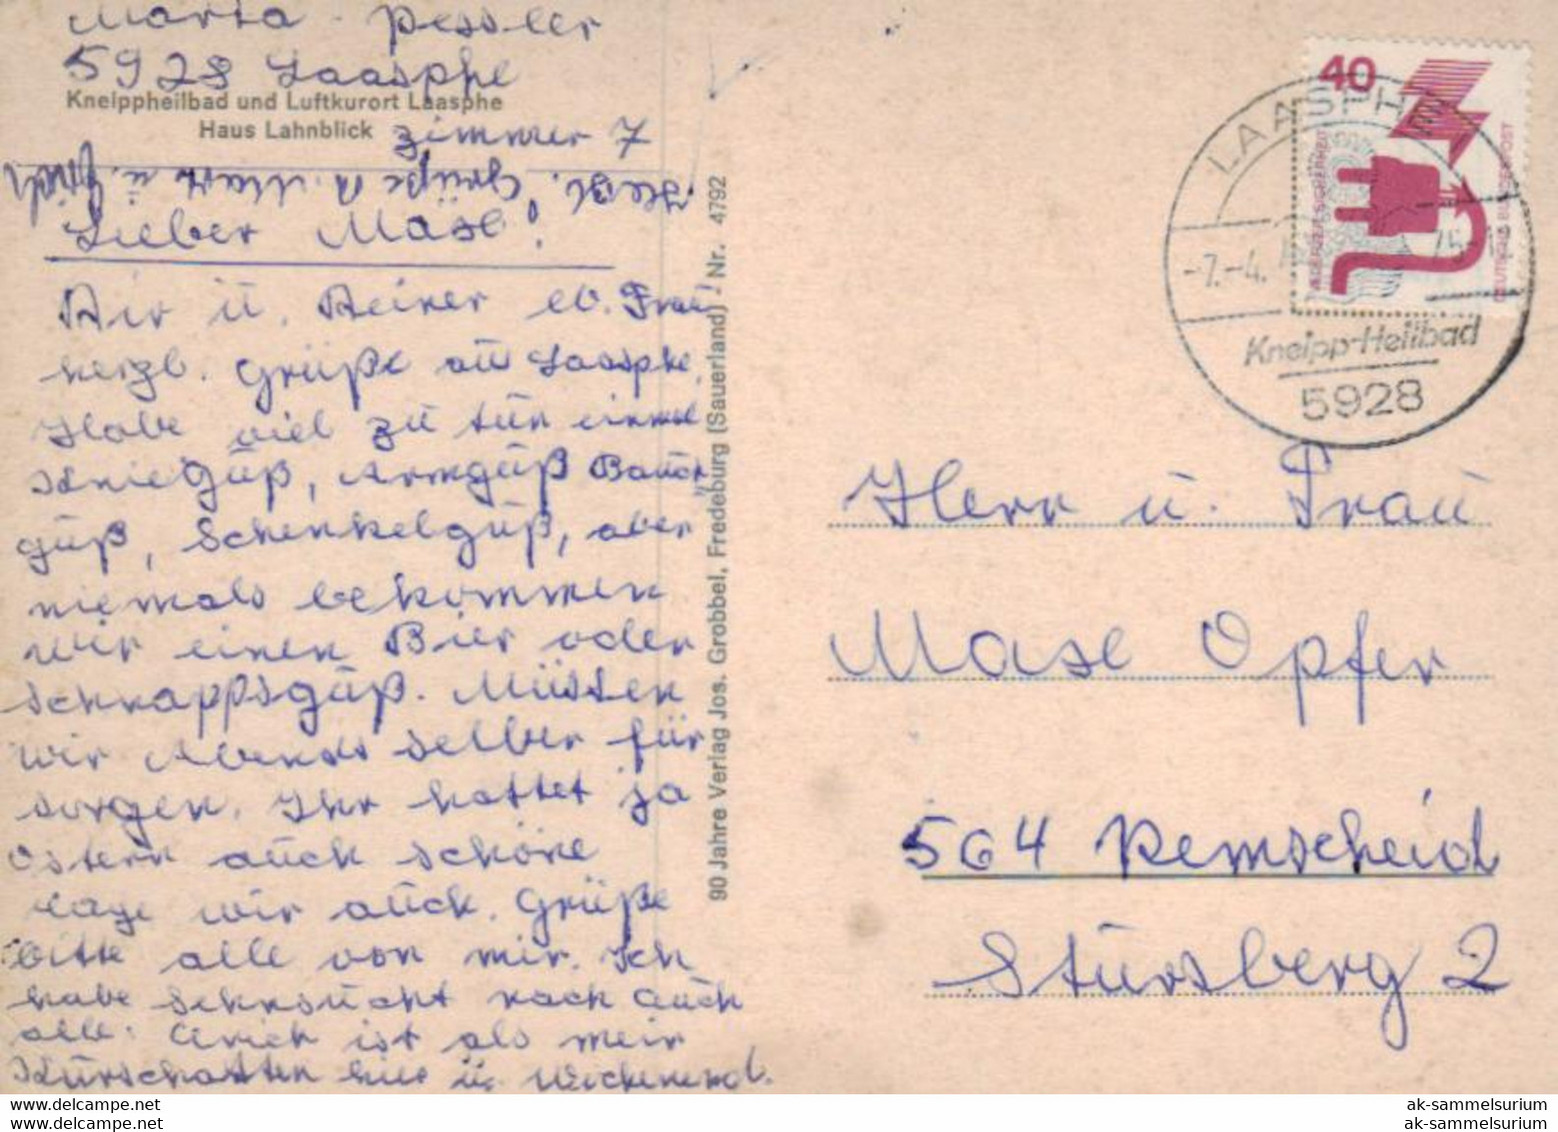 Maria Pessler
5928 Laasphe
Kneippheilbad und Luftkurort Laasphe
Haus Lahnblick
Zimmer 7
Herzl. Grüße
Lieber Mäse!
Dir u. Deiner lb. Frau
herzl. Grüße aus Laasphe.
Habe viel zu tun einmal
Knieguß, Armguß Bauch
guß, Schenkelguß, aber
niemals bekommen
wir einen Bier oder
schnappsguß. Müssen
wir Abends selber für
sorgen. Ihr hattet ja
Ostern auch schöne
Tage wir auch. Grüße
bitte alle von mir. Ich
habe Sehnsucht nach Euch
alle. Erich ist als mein
Kurschatten hier ü. Wochenend.
90 Jahre Verlag Jos. Grobbel, Fredeburg (Sauerland) - Nr. 4792
40
JEDERZEIT SICHERHEIT
DEUTSCHE BUNDESPOST
LAASPHE
-7.-4.
Kneipp-Heilbad
5928
Herr u. Frau
Mase Opfer
564 Remscheid
Stursberg 2
www.delcampe.net
www.delcampe.net
ak-sammelsurium
ak-sammelsurium